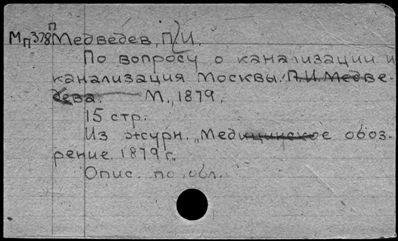 П
Мп378 Медведев, П.И.
По вопросу о канализации и
канализация Москвы. П.И. Медве-
дева. М., 1879.
15 стр.
Из журн. "Медицинское обоз-
рение 1879 г.
Опис. по обл.